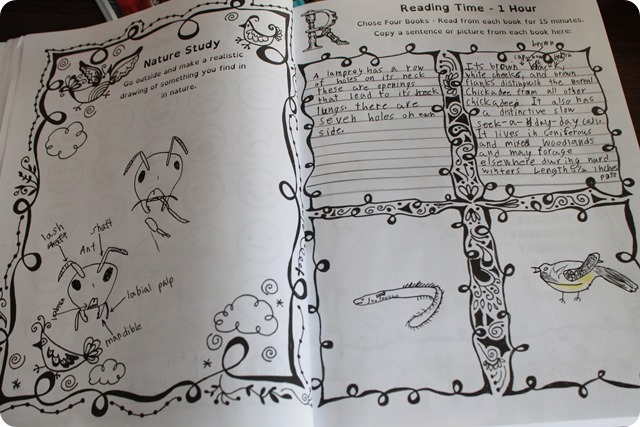 Nature Study
Go outside and make a realistic
drawing of something you find in
in nature.
lash
shaft
Ant
labial palp
mandible
R
Reading Time - 1 Hour
Chose Four Books - Read from each book for 15 minutes.
Copy a sentence or picture from each book here:
A lamprey has a row
of holes on its neck
these are openings
that lead to its
lungs. there are
seven holes on each
side.
brown
Its brown
while cheeks, and brown
flanks distinguish the boreal
chickadee from all other
chickadees It also has
a distinctive slow
seek-a-day-day call.
It lives in coniferous
and mixed woodlands
and may forage
elsewhere during hard
winters Length 5½ inches